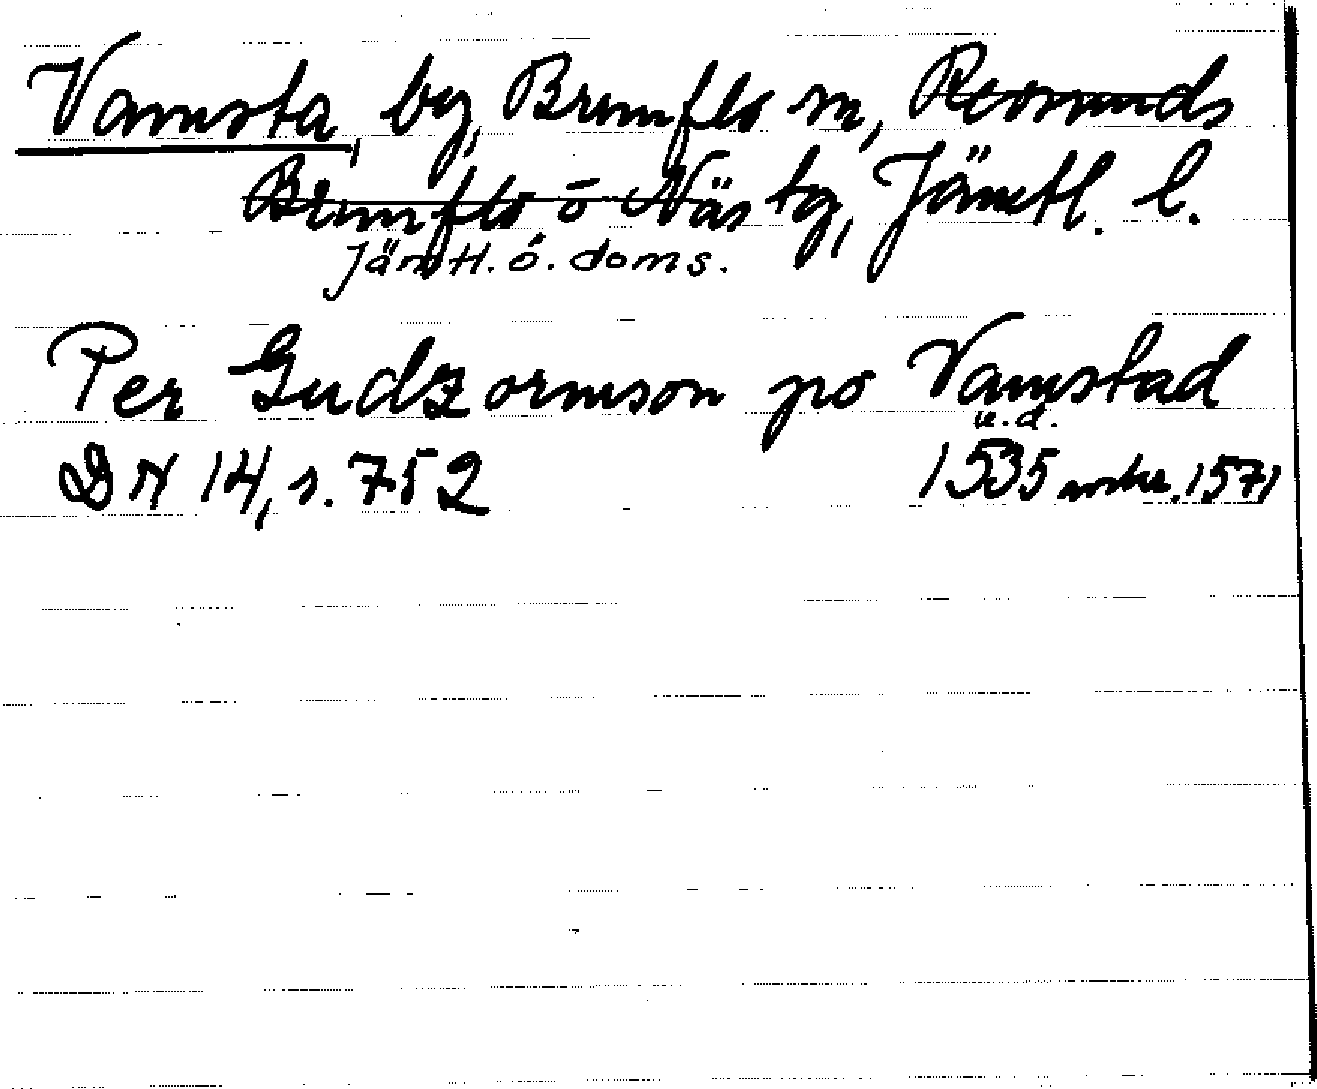 Vamsta, by, Brunflo sn, Revsunds
Brunflo o Näs tg, Jämtl. l.
Jämtl. ö. doms.
Per Gudzormson po Vamstad
u.d.
DN 14, s. 752 1535 avskr. 1571